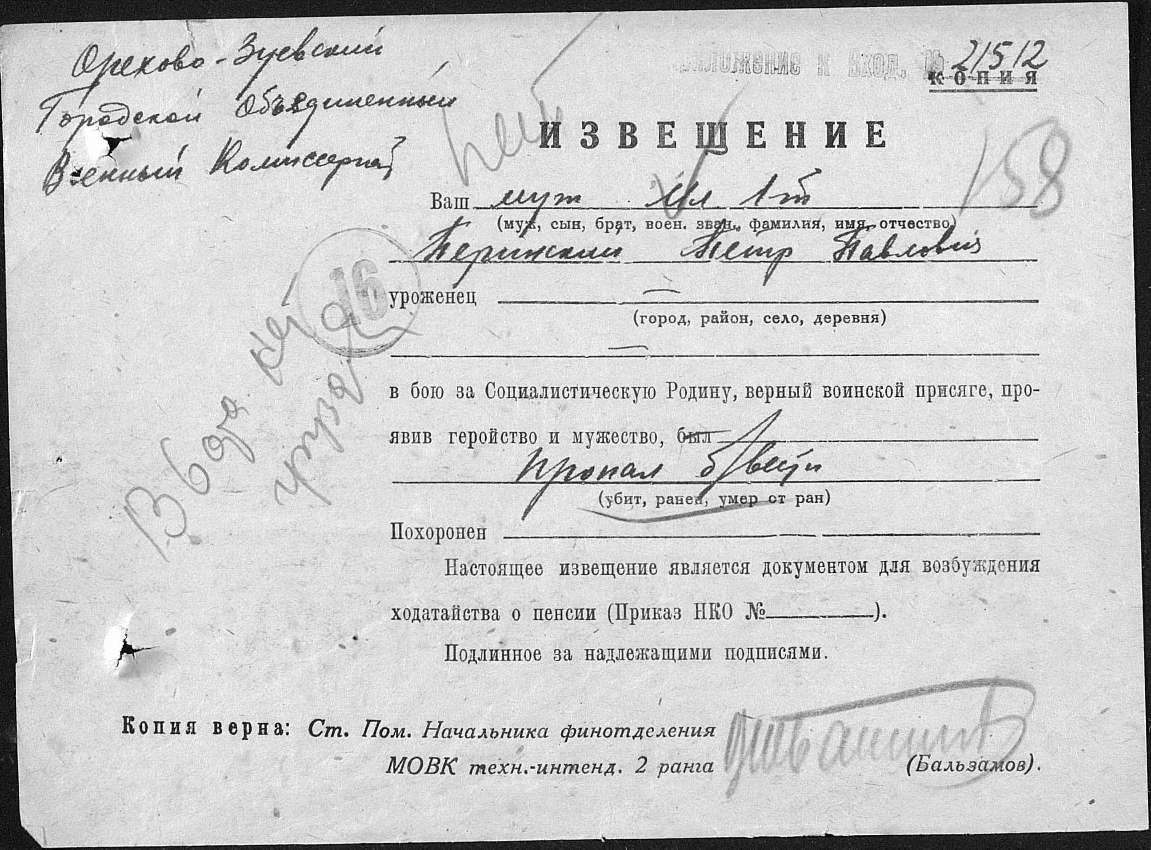 Орехово-Зуевский
Городской Объединенный
Военный Комиссариат
приложение к вход. № 21512
КОПИЯ
нет
ИЗВЕЩЕНИЕ
158
Ваш муж Мл л-т
(муж, сын, брат, воен. зван., фамилия, имя, отчество)
Петр Павлович
16
уроженец —
(город, район, село, деревня)
—
в бою за Социалистическую Родину, верный воинской присяге, про-
явив геройство и мужество, был
пропал б/вести
(убит, ранен, умер от ран)
Похоронен
Настоящее извещение является документом для возбуждения
ходатайства о пенсии (Приказ НКО №).
Подлинное за надлежащими подписями.
Копия верна: Ст. Пом. Начальника финотделения
МОВК техн.-интенд. 2 ранга (Бальзамов).